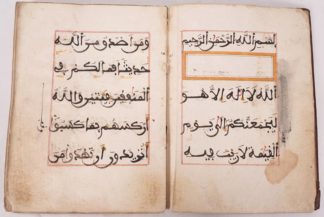 بسم الله الرحمن الرحيم
الله لا اله الا هو
ليجمعنكم الى يوم
القيمة لا ريب فيه
ومن اصدق من الله
حديثا فما لكم في
المنفقين فئتين والله
اركسهم بما كسبوا
اتريدون ان تهدوا من